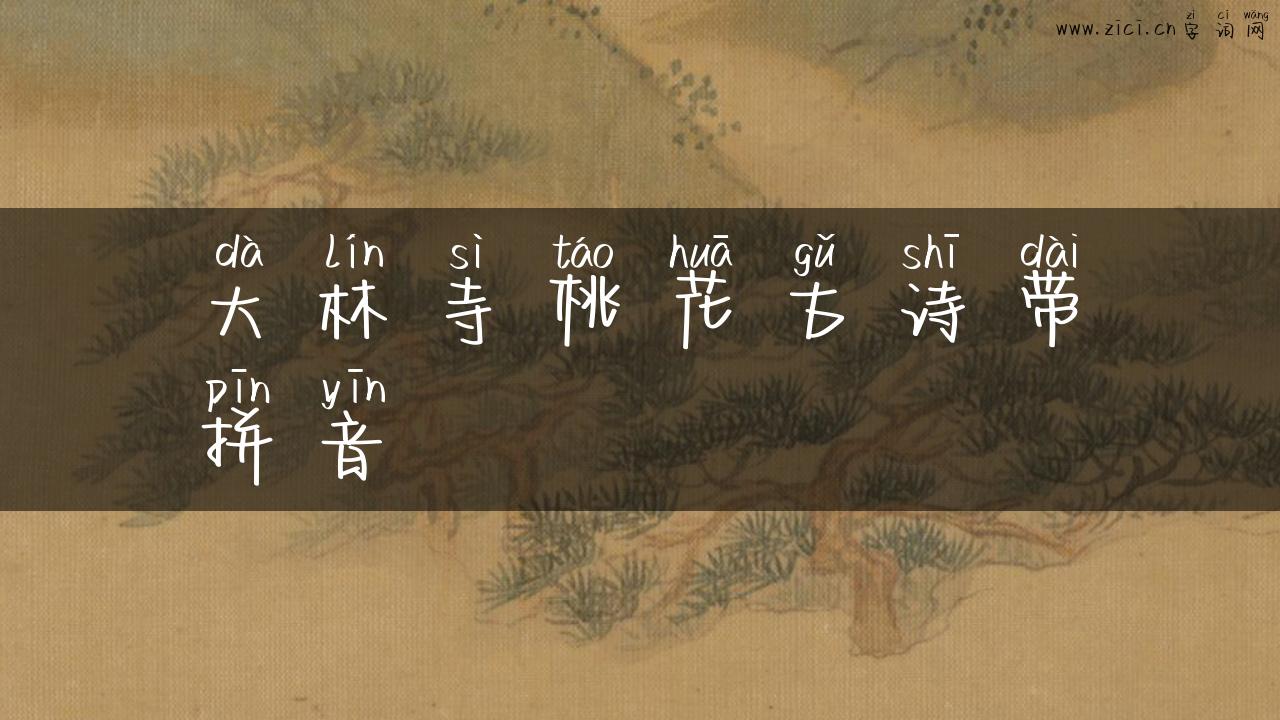 zì cí wǎng
www.zici.cn 字词网
dà lín sì táo huā gǔ shī dài
大林寺桃花古诗带
pīn yīn
拼音